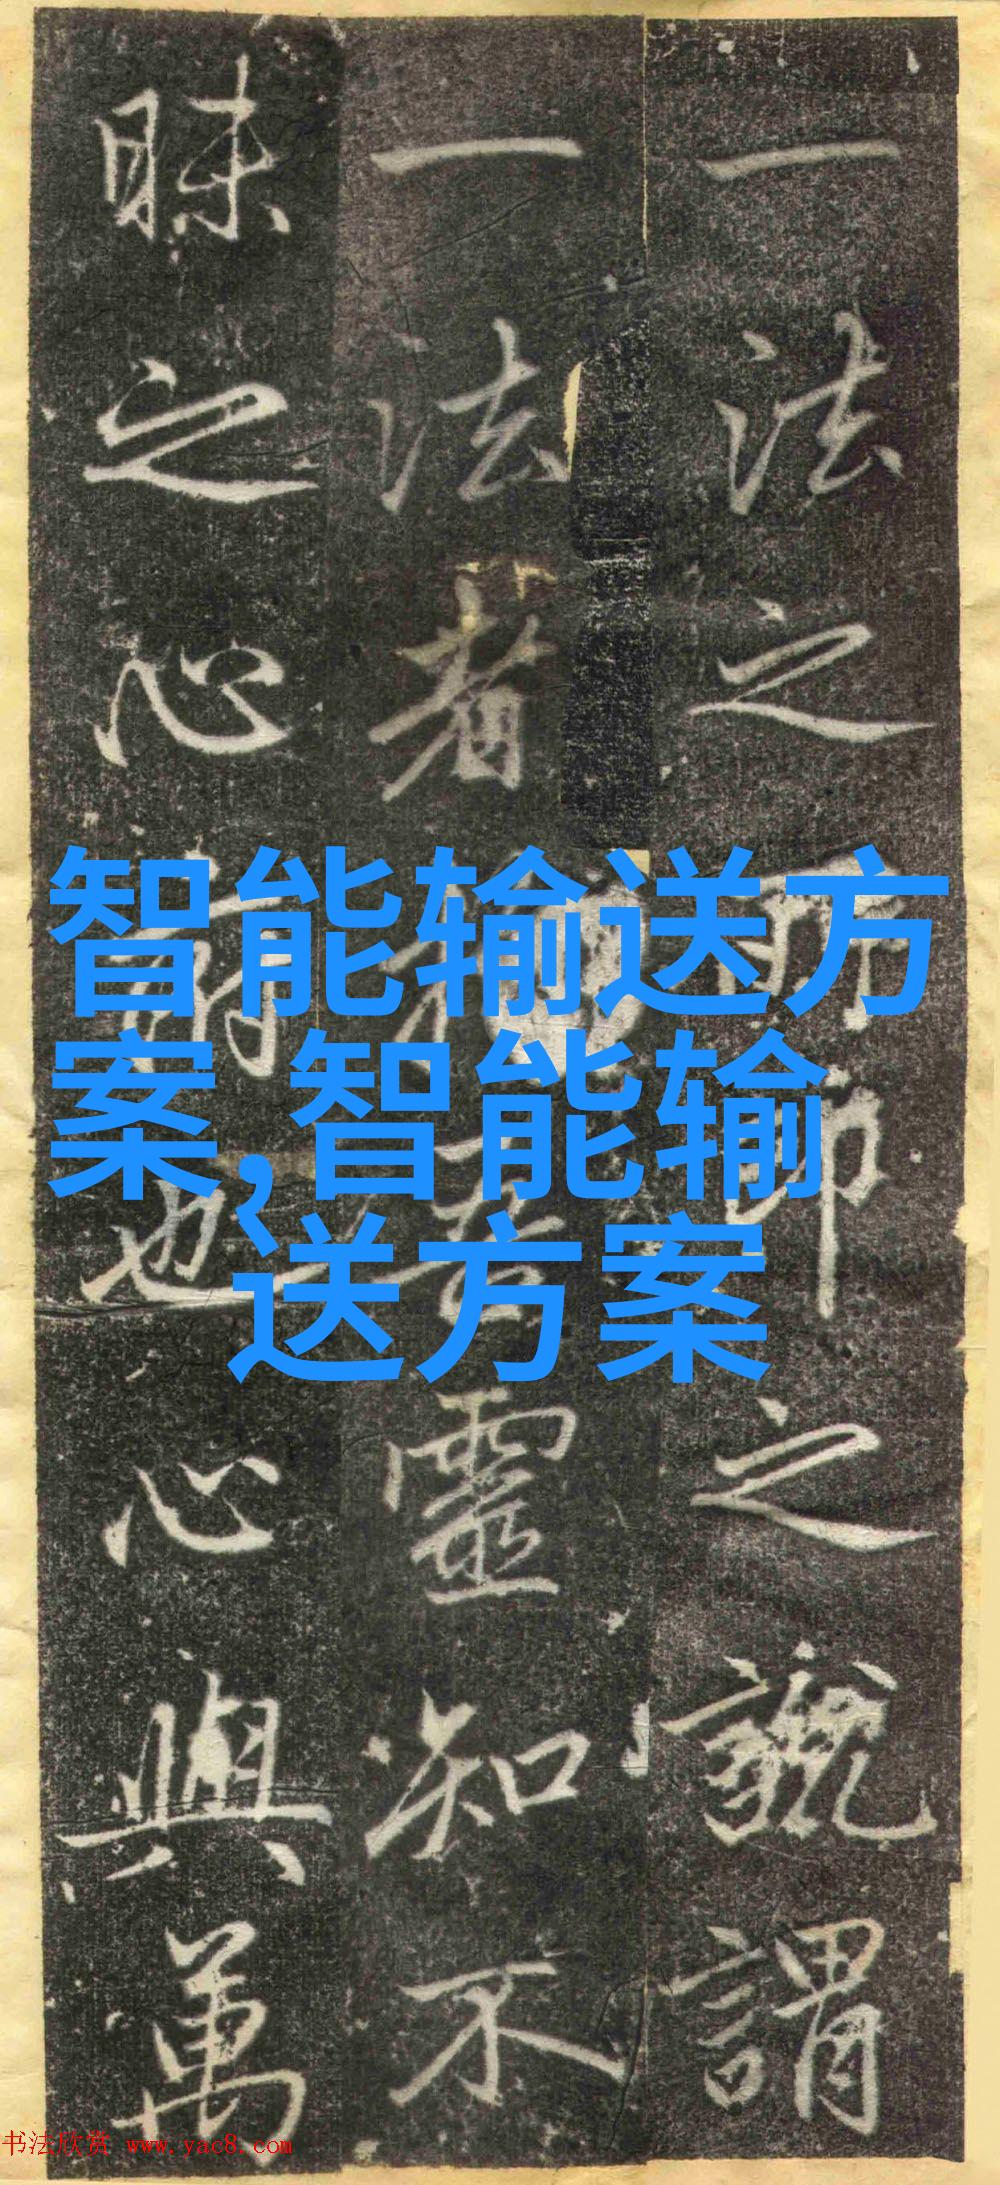 一法之印之謂
一法者靈知不
昧之心也心與萬
智能输送方
案,智能输
送方案
书法欣赏 www.yac8.com